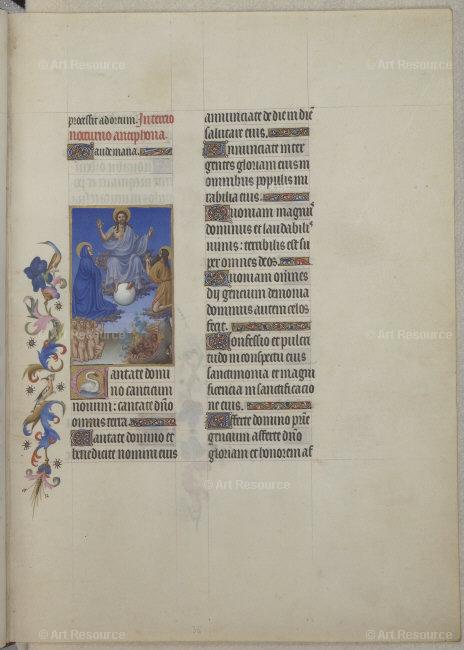 © Art Resource
© Art Resource
processit ad ortum. In tercio
nocturno antiphona.
Gaude maria.
Cantate domi
no canticum
novum: cantate dño
omnis terra.
Cantate domino et
benedicite nomini eius
annunciate de die in diē
salutare eius.
Annunciate inter
gentes gloriam eius in
omnibus populis mi
rabilia eius.
Quoniam magnus
dominus et laudabilis
nimis: terribilis est su
per omnes deos.
Quoniam omnes
dij gencium demonia
dominus autem celos
fecit.
Confessio et pulcri
tudo in conspectu eius
sanctimonia et magni
ficencia in sanctificacio
ne eius.
Afferte domino patrie
gencium afferte dño
gloriam et honorem af
© Art Resource
© Art Resource
© Art Resource
© Art Resource
© Art Resource